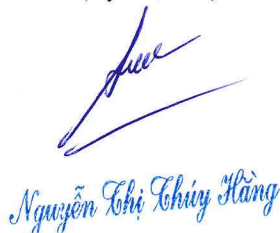 Nguyễn Thị Thúy Hằng